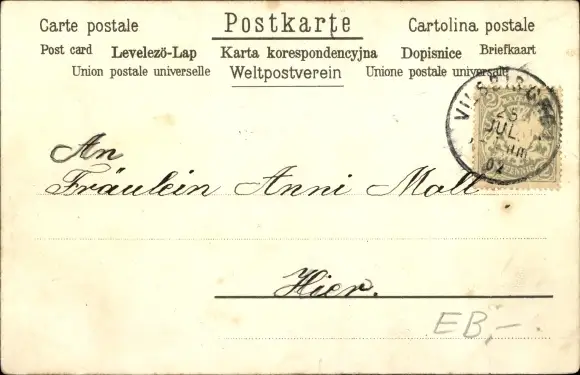 Carte postale Postkarte Cartolina postale
Post card Levelezö-Lap Karta korespondencyjna Dopisnice Briefkaart
Union postale universelle Weltpostverein Unione postale universale
VILSBIBURG
25
JUL.
02
An
Fräulein Anni Moll
Hier.
EB,-